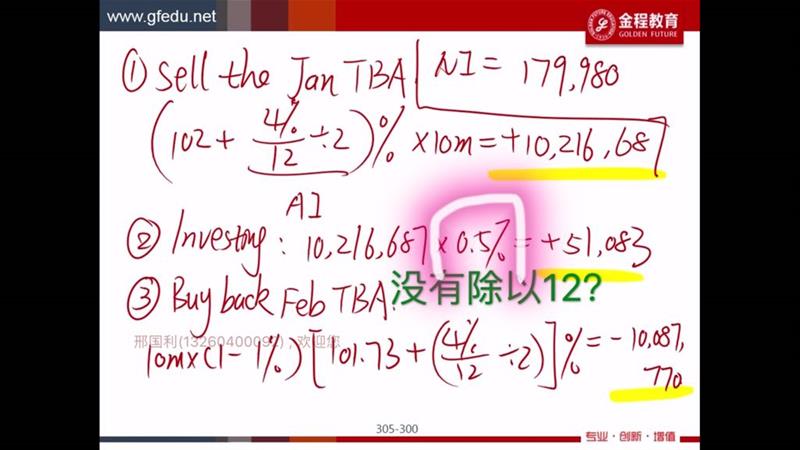 www.gfedu.net
金程教育
GOLDEN FUTURE
① Sell the Jan TBA
NI = 179,980
(102 + 4%/12 ÷2)% ×10m = +10,216,687
AI
② Investing: 10,216,687 × 0.5% = +51,083
没有除以12?
③ Buy back Feb TBA:
邢国利(13260400092)，欢迎您
10m×(1-1%)[101.73+(4%/12 ÷2)]% = -10,087,
770
305-300
专业·创新·增值